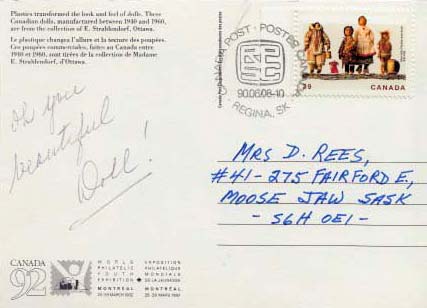 Plastics transformed the look and feel of dolls. These
Canadian dolls, manufactured between 1940 and 1960,
are from the collection of E. Strahlendorf, Ottawa.
Le plastique changea l'allure et la texture des poupées.
Ces poupées commerciales, faites au Canada entre
1940 et 1960, sont tirées de la collection de Madame
E. Strahlendorf, d'Ottawa.
oh you
beautiful
Doll!
CANADA POST · POSTES CANADA
90.06.08-10
REGINA, SK
39 CANADA
MRS D. REES,
#41-275 FAIRFORD E,
MOOSE JAW SASK
- S6H 0E1 -
CANADA
92
WORLD
PHILATELIC
YOUTH
EXHIBITION
MONTRÉAL
25-29 MARCH 1992
EXPOSITION
PHILATÉLIQUE
MONDIALE
DE LA JEUNESSE
MONTRÉAL
25-29 MARS 1992